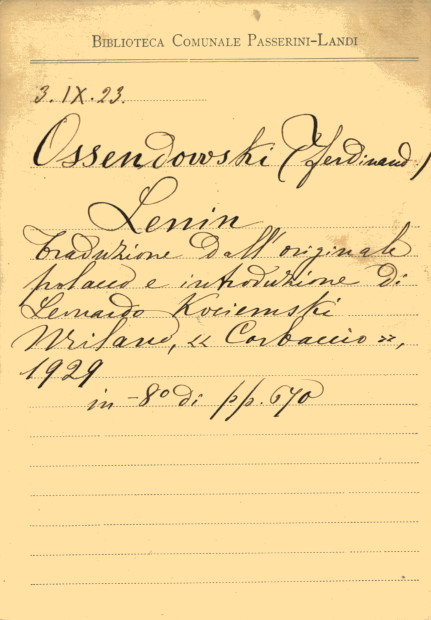 BIBLIOTECA COMUNALE PASSERINI-LANDI
3. IX. 23.
Ossendowski (Ferdinand)
Lenin
traduzione dall'originale
polacco e introduzione di
Leonardo Kociemski
Milano, « Corbaccio »,
1929
in -8° di pp. 670